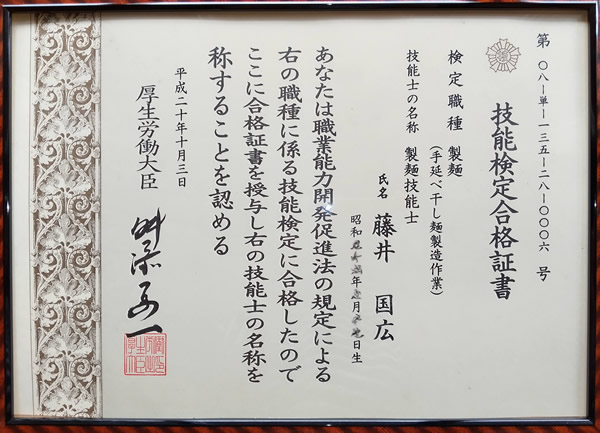 第〇八-単-一三五-二八-〇〇〇六号
技能検定合格証書
検定職種 製麺
(手延べ干し麺製造作業)
技能士の名称 製麺技能士
氏名 藤井 国広
昭和 年 月 日生
あなたは職業能力開発促進法の規定による
右の職種に係る技能検定に合格したので
ここに合格証書を授与し右の技能士の名称を
称することを認める
平成二十年十月三日
厚生労働大臣